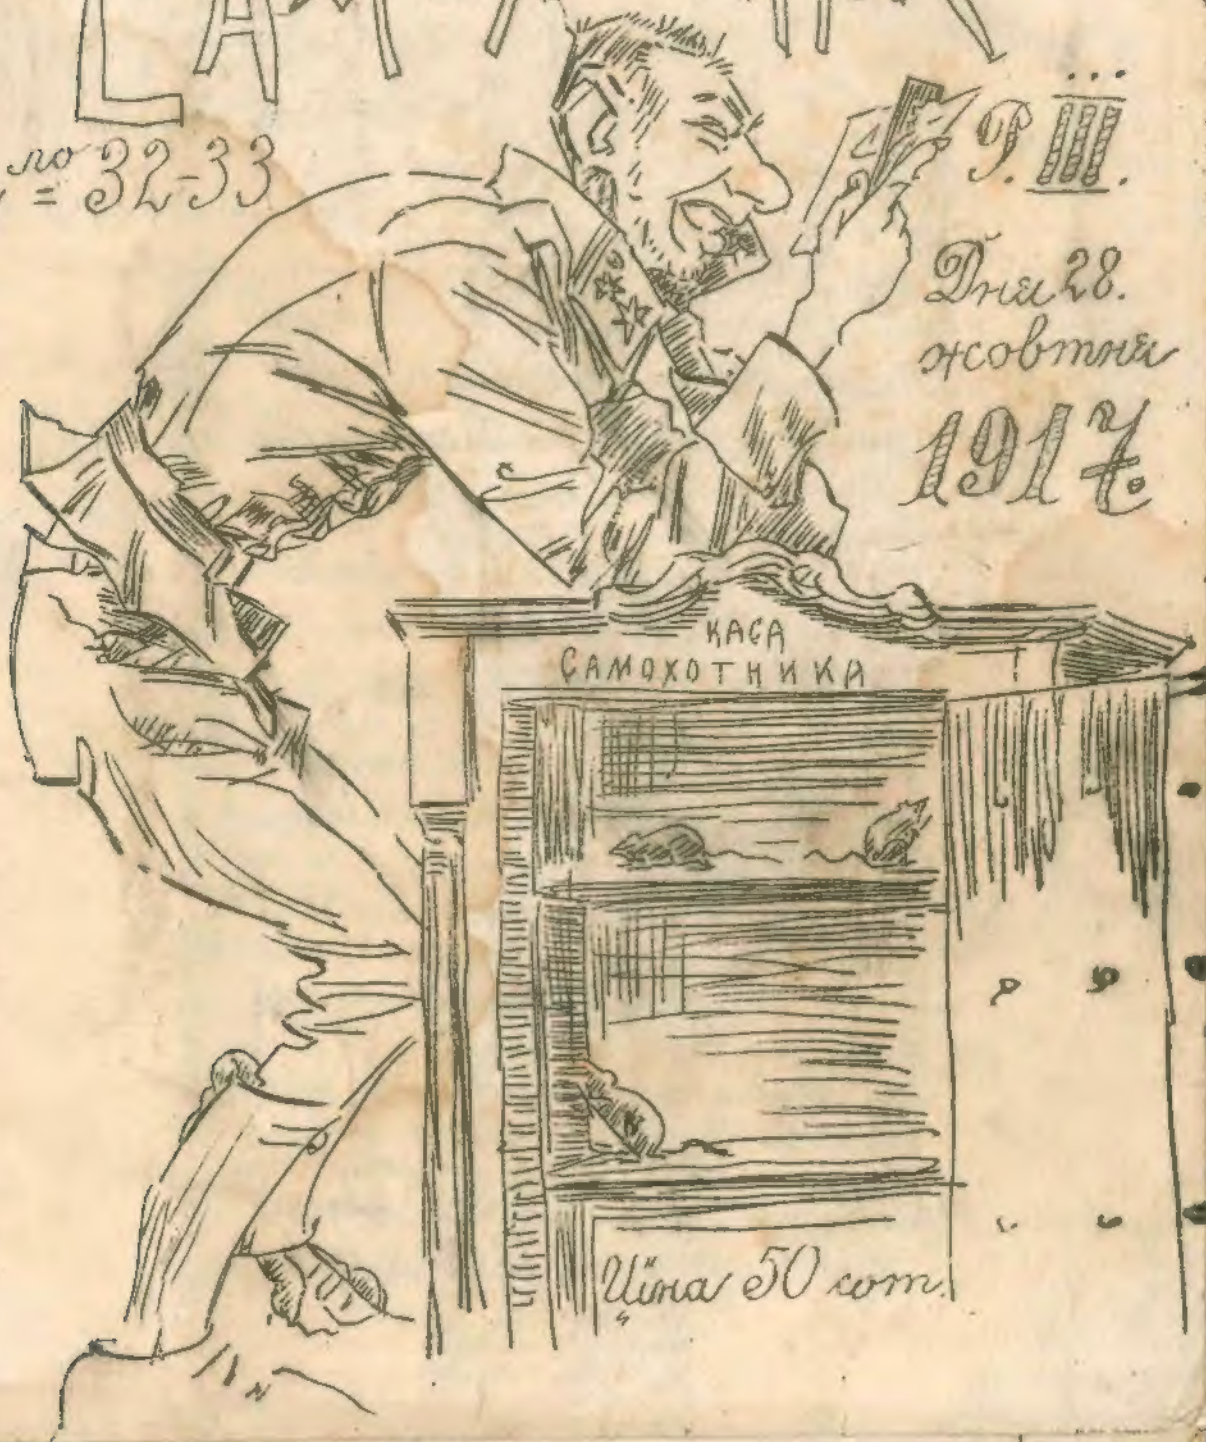 = 32-33
Р. III.
Дня 28.
жовтня
1917.
КАСА
САМОХОТНИКА
Ціна 50 сот.